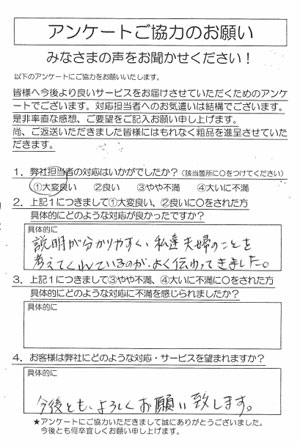 アンケートご協力のお願い
みなさまの声をお聞かせください！
以下のアンケートにご協力をお願いいたします。
皆様へ今後より良いサービスをお届けさせていただくためのアンケ
ートでございます。対応担当者へのお気遣いは結構でございます。
是非率直な感想、ご要望をご記入お願い申し上げます。
尚、ご返送いただきました皆様にはもれなく粗品を進呈させていた
だきます。
1．弊社担当者の対応はいかがでしたか？（該当箇所に○をつけてください）
①大変良い　②良い　③やや不満　④大いに不満
2．上記１につきまして①大変良い、②良いに○をされた方
具体的にどのような対応が良かったですか？
具体的に
説明が分かりやすく、私達夫婦のことを
考えてくれているのが、よく伝わってきました。
3．上記１につきまして③やや不満、④大いに不満に○をされた方
具体的にどのような対応に不満を感じられましたか？
具体的に
4．お客様は弊社にどのような対応・サービスを望まれますか？
具体的に
今後とも、よろしくお願い致します。
★アンケートにご協力いただきまして誠にありがとうございました。
今後とも何卒宜しくお願い申し上げます。